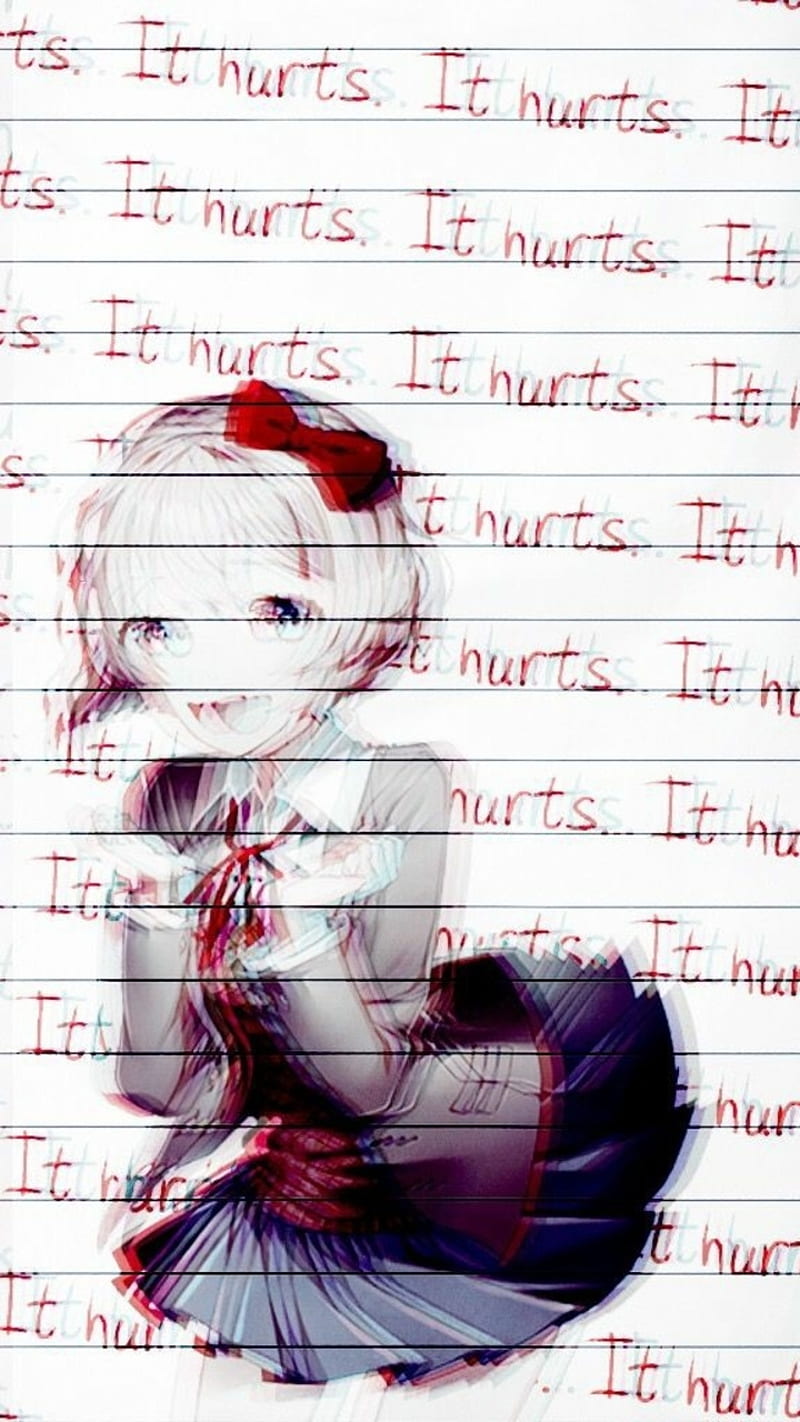 ts. It hurts. It hurts. It
ts. It hurts. It hurts. It
ts. It hurts. It hurts. It h
s. t hurts. It h
s. t hurts. It hu
It hurts... It hu
It hurts... It hur
It hur
It hurr t hurt
It hur ... It hurt